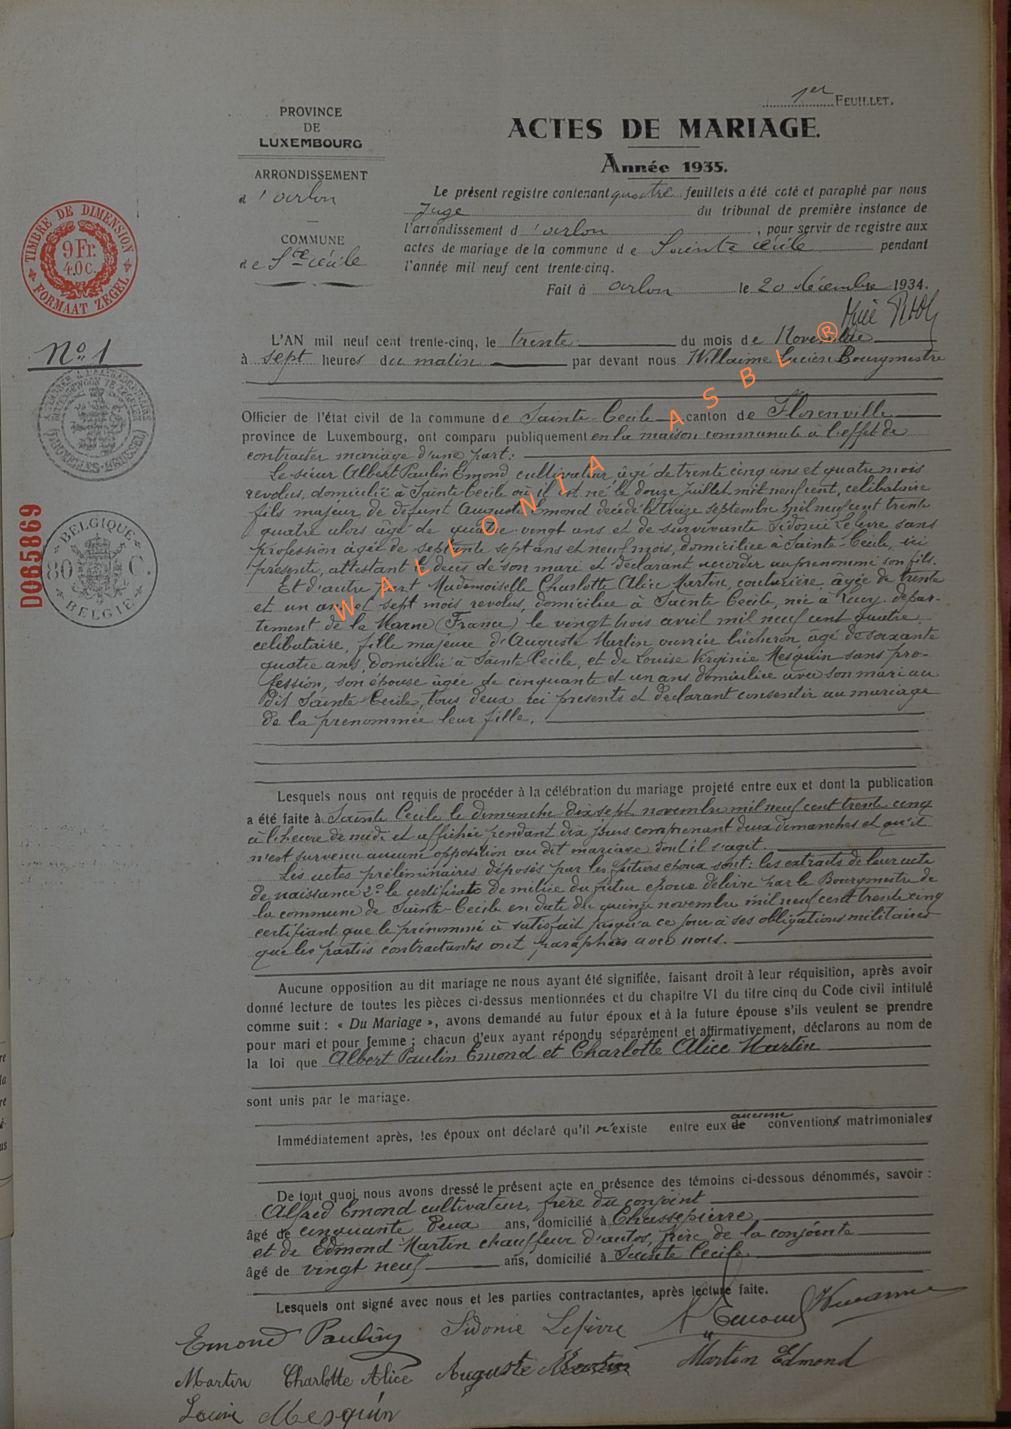 1er FEUILLET.
PROVINCE
DE
LUXEMBOURG
ACTES DE MARIAGE.
Année 1935.
ARRONDISSEMENT
d'Arlon
COMMUNE
de Ste Cécile
Le présent registre contenant quatre feuillets a été coté et paraphé par nous
Juge du tribunal de première instance de
l'arrondissement d'Arlon, pour servir de registre aux
actes de mariage de la commune de Sainte Cécile pendant
l'année mil neuf cent trente-cinq.
Fait à Arlon le 20 décembre 1934.
TIMBRE DE DIMENSION
9 Fr.
40 c.
FORMAAT ZEGEL
No 1
L'AN mil neuf cent trente-cinq, le trente du mois de Novembre
à sept heures du matin par devant nous Willaime Lucien Bourgmestre
Officier de l'état civil de la commune de Sainte-Cécile canton de Florenville
province de Luxembourg, ont comparu publiquement en la maison communale à l'effet de
contracter mariage d'une part:
Le sieur Albert Paulin Emond cultivateur, âgé de trente cinq ans et quatre mois
revolus, domicilié à Sainte Cécile où il est né le douze juillet mil neuf cent, celibataire
fils majeur de défunt Auguste Emond décédé le treize septembre mil neuf cent trente
quatre alors âgé de quatre-vingt ans et de survivante Sidonie Lefevre sans
profession âgée de septante sept ans et neuf mois, domiciliée à Sainte-Cécile, ici
présente, attestant le décès de son mari et déclarant accorder au prenommé son fils.
Et d'autre part Mademoiselle Charlotte Alice Martin couturière, âgée de trente
et un ans et sept mois revolus, domiciliée à Sainte Cecile, née à depar-
tement de la Marne (France) le vingt trois avril mil neuf cent quatre
celibataire, fille majeure d'Auguste Martin ouvrier bûcheron, agé de soixante
quatre ans, domicilié à Sainte Cécile, et de Louise Virginie Mesquin sans pro-
fession, son épouse âgée de cinquante et un ans domiciliée avec son mari au
dit Sainte-Cécile, tous deux ici présents et déclarant consentir au mariage
de la prenommée leur fille.
BELGIQUE
80 C.
BELGIE
D065869
WALLONIA ASBL ®
Lesquels nous ont requis de procéder à la célébration du mariage projeté entre eux et dont la publication
a été faite à Sainte Cécile le dimanche dix sept novembre mil neuf cent trente cinq
à l'heure de midi et affichée pendant dix jours comprenant deux dimanches et qu'il
n'est survenu aucune opposition au dit mariage dont il s'agit.
Les actes préliminaires déposés par les futurs époux sont: les extraits de leur acte
de naissance 2º le certificat de milice du futur époux délivré par le Bourgmestre de
la commune de Sainte-Cécile en date du quinze novembre mil neuf cent trente cinq
certifiant que le prénommé à satisfait jusqu'a ce jour à ses obligations militaires
que les parties contractantes ont paraphées avec nous.
Aucune opposition au dit mariage ne nous ayant été signifiée, faisant droit à leur réquisition, après avoir
donné lecture de toutes les pièces ci-dessus mentionnées et du chapitre VI du titre cinq du Code civil intitulé
comme suit : « Du Mariage », avons demandé au futur époux et à la future épouse s'ils veulent se prendre
pour mari et pour femme ; chacun d'eux ayant répondu séparément et affirmativement, déclarons au nom de
la loi que Albert Paulin Emond et Charlotte Alice Martin
sont unis par le mariage.
Immédiatement après, les époux ont déclaré qu'il n'existe entre eux aucune conventions matrimoniales
De tout quoi nous avons dressé le présent acte en présence des témoins ci-dessous dénommés, savoir :
Alfred Emond cultivateur, frère du conjoint
âgé de cinquante deux ans, domicilié à Chassepierre
et de Edmond Martin chauffeur d'autos, frère de la conjointe
âgé de vingt neuf ans, domicilié à Sainte Cécile
Lesquels ont signé avec nous et les parties contractantes, après lecture faite.
Emond Paulin Sidonie Lefèvre A Emond Willaime
Martin Charlotte Alice Auguste Martin Martin Edmond
Louise Mesquin